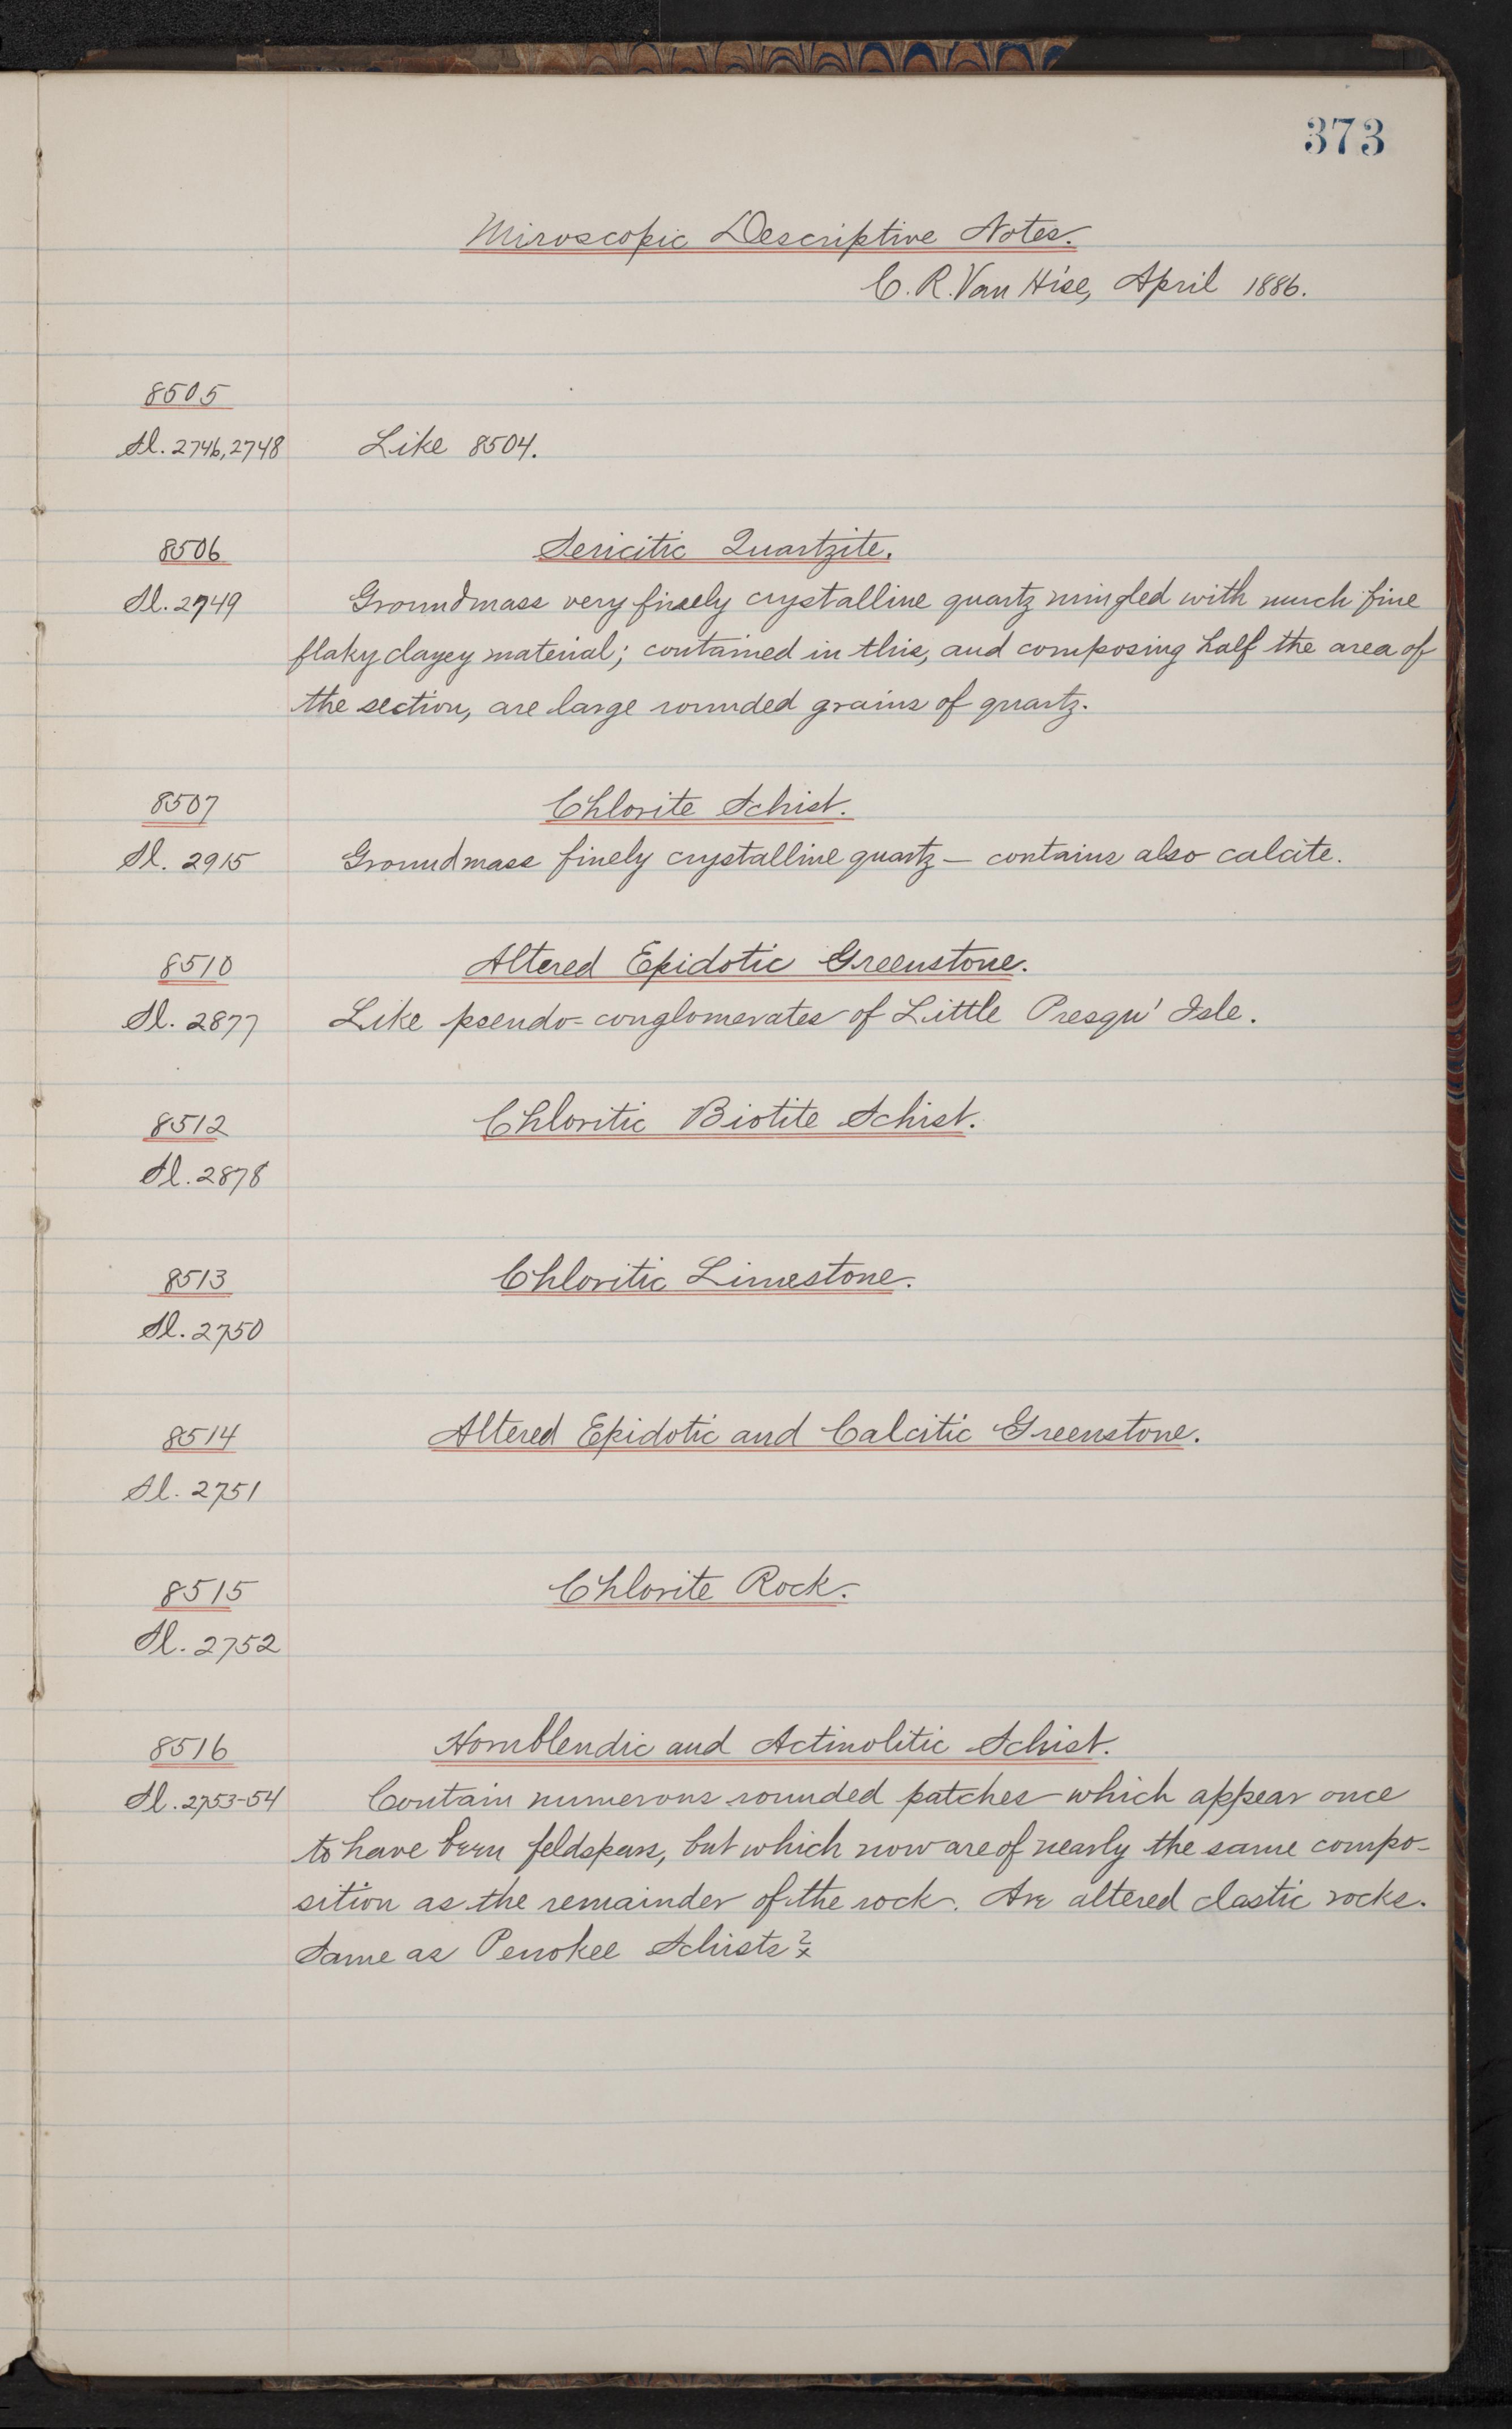 373
Miroscopic Descriptive Notes.
C. R. Van Hise, April 1886.
8505
Sl. 2746, 2748 Like 8504.
8506 Sericitic Quartzite.
Sl. 2749 Groundmass very finely crystalline quartz mingled with much fine
flaky clayey material; contained in this, and composing half the area of
the section, are large rounded grains of quartz.
8507 Chlorite Schist.
Sl. 2915 Groundmass finely crystalline quartz — contains also calcite.
8510 Altered Epidotic Greenstone.
Sl. 2877 Like pseudo-conglomerates of Little Presqu' Isle.
8512 Chloritic Biotite Schist.
Sl. 2878
8513 Chloritic Limestone.
Sl. 2750
8514 Altered Epidotic and Calcitic Greenstone.
Sl. 2751
8515 Chlorite Rock.
Sl. 2752
8516 Hornblendic and Actinolitic Schist.
Sl. 2753-54 Contain numerous rounded patches which appear once
to have been feldspars, but which now are of nearly the same compo-
sition as the remainder of the rock. Are altered clastic rocks.
Same as Penokee Schists?